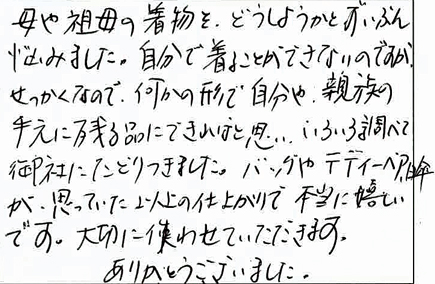 母や祖母の着物を、どうしようかとずいぶん
悩みました。自分で着ることができないのですが、
せっかくなので、何かの形で自分や、親族の
手元に残る品にできればと思い、いろいろ調べて
御社にたどりつきました。バッグやテディーベア、日傘
が、思っていた以上の仕上がりで本当に嬉しい
です。大切に使わせていただきます。
ありがとうございました。